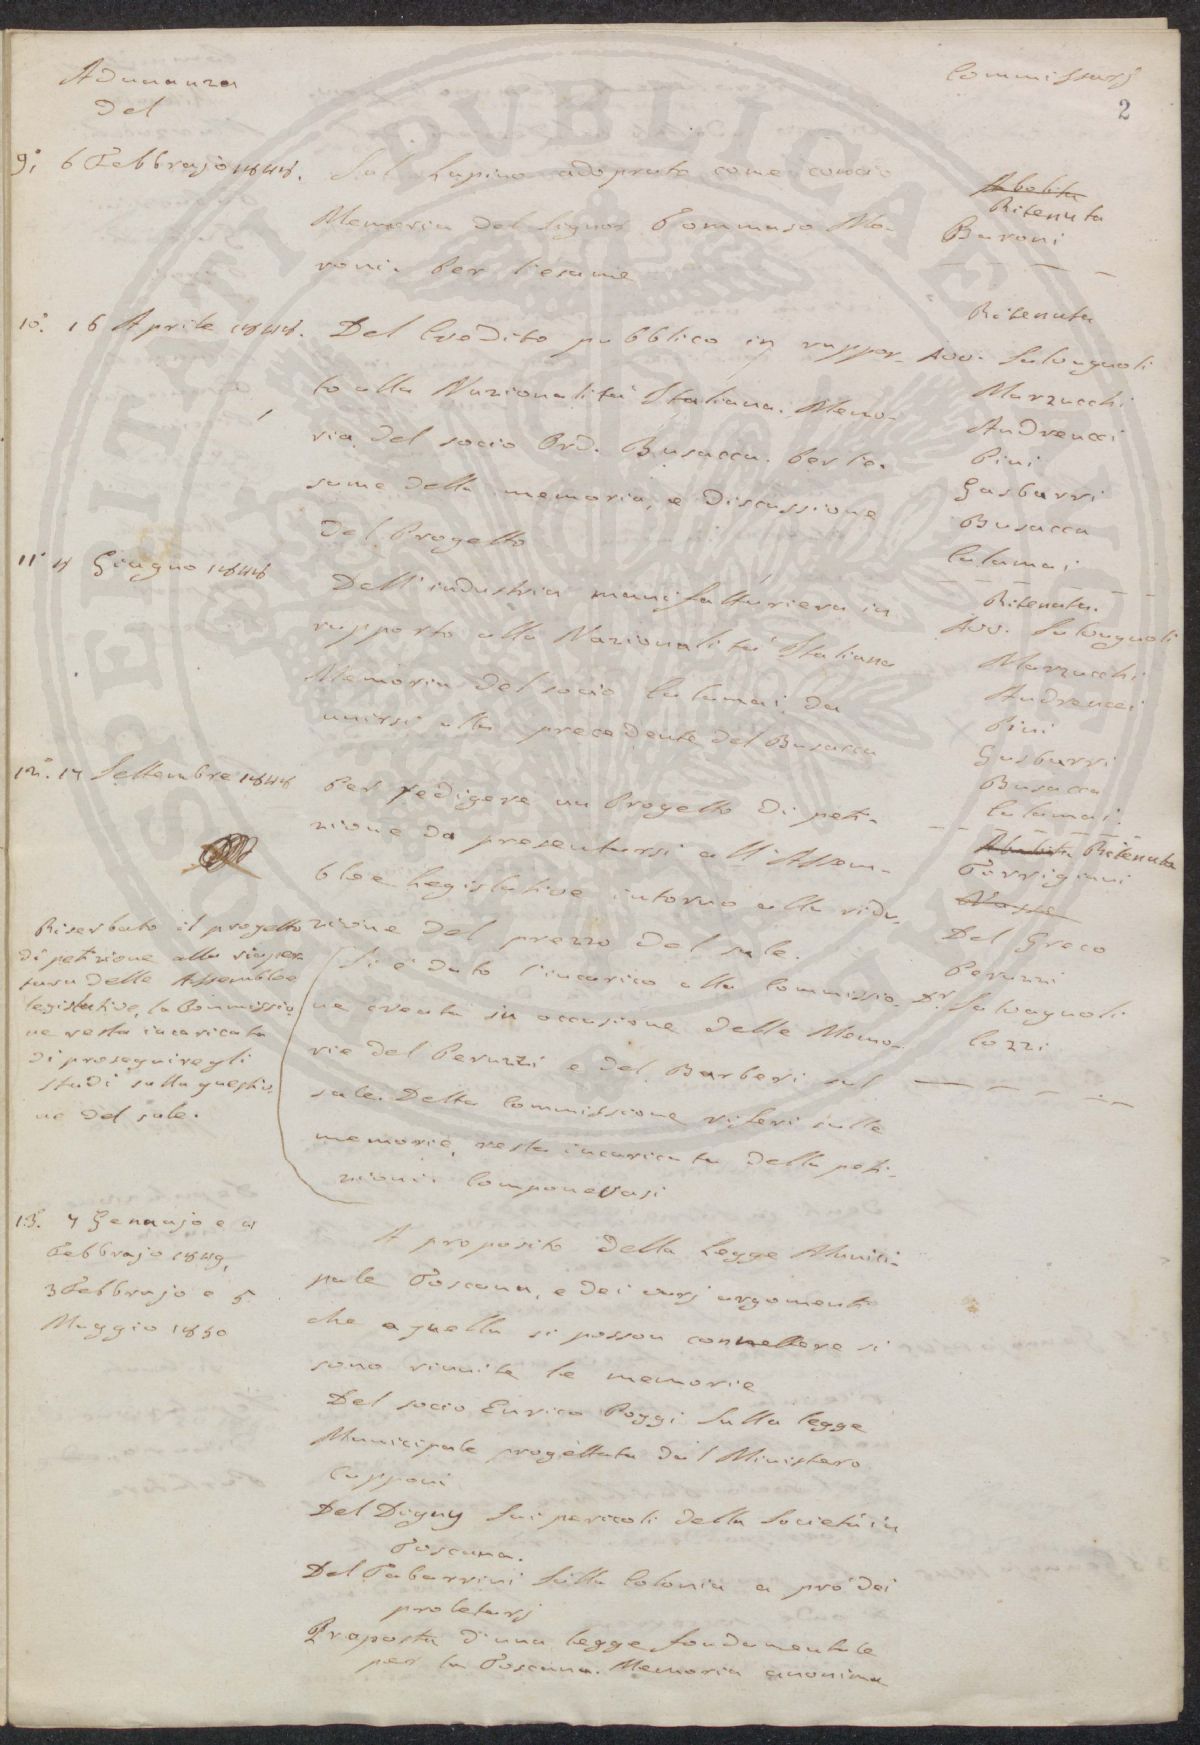 Adunanza
del
Commissarj
2
9°. 6 Febbrajo 1848.
Sul Lupino adoprato come concio
Memoria del Signor Tommaso Ma-
roni. Per l'esame
Abolita
Ritenuta
Baroni
10°. 16 Aprile 1848.
Del Credito pubblico in rappor-
to alla Nazionalità Italiana. Memo-
ria del socio Ord. Busacca. Per l'e-
same della memoria, e discussione
del Progetto
Ritenuta
Avv. Salvagnoli
Marzucchi
Andreucci
Pini
Gasbarri
Busacca
Calamai
11° 4 Giugno 1848
Dell'industria manifatturiera in
rapporto alla Nazionalità Italiana
Memoria del socio Calamai, da
unirsi alla precedente del Busacca
Ritenuta.
Avv. Salvagnoli
Marzucchi
Andreucci
Pini
Gasbarri
Busacca
Calamai.
12°. 17 Settembre 1848
Per redigere un Progetto di peti-
zione da presentarsi all'Assem-
blee Legislative intorno alla ridu-
zione del prezzo del sale.
Si è dato l'incarico alla Commissio-
ne creata in occasione delle Memo-
rie del Peruzzi e del Barberi sul
sale. Detta Commissione riferì sulle
memorie, resta incaricata della peti-
zioni. Componevasi
Abolita Ritenuta
Torrigiani
Del Greco
Peruzzi
Dr. Salvagnoli
Cozzi
Riserbato il progetto
di petizione alla riaper-
tura delle Assemblee
legislative, la Commissio-
ne resta incaricata
di proseguire gli
studi sulla questio-
ne del sale.
13. 7 Gennajo e 4
Febbrajo 1849,
3 Febbrajo e 5
Maggio 1850
A proposito della Legge Munici-
pale Toscana, e dei varj argomenti
che a quella si posson connettere si
sono riunite le memorie
Del socio Enrico Poggi Sulla legge
Municipale progettata dal Ministero
Capponi
Del Digny Sui pericoli della Società in
Toscana.
Del Tabarrini Sulla Colonia a pro' dei
proletarj
Proposta d'una legge fondamentale
per la Toscana. Memoria anonima